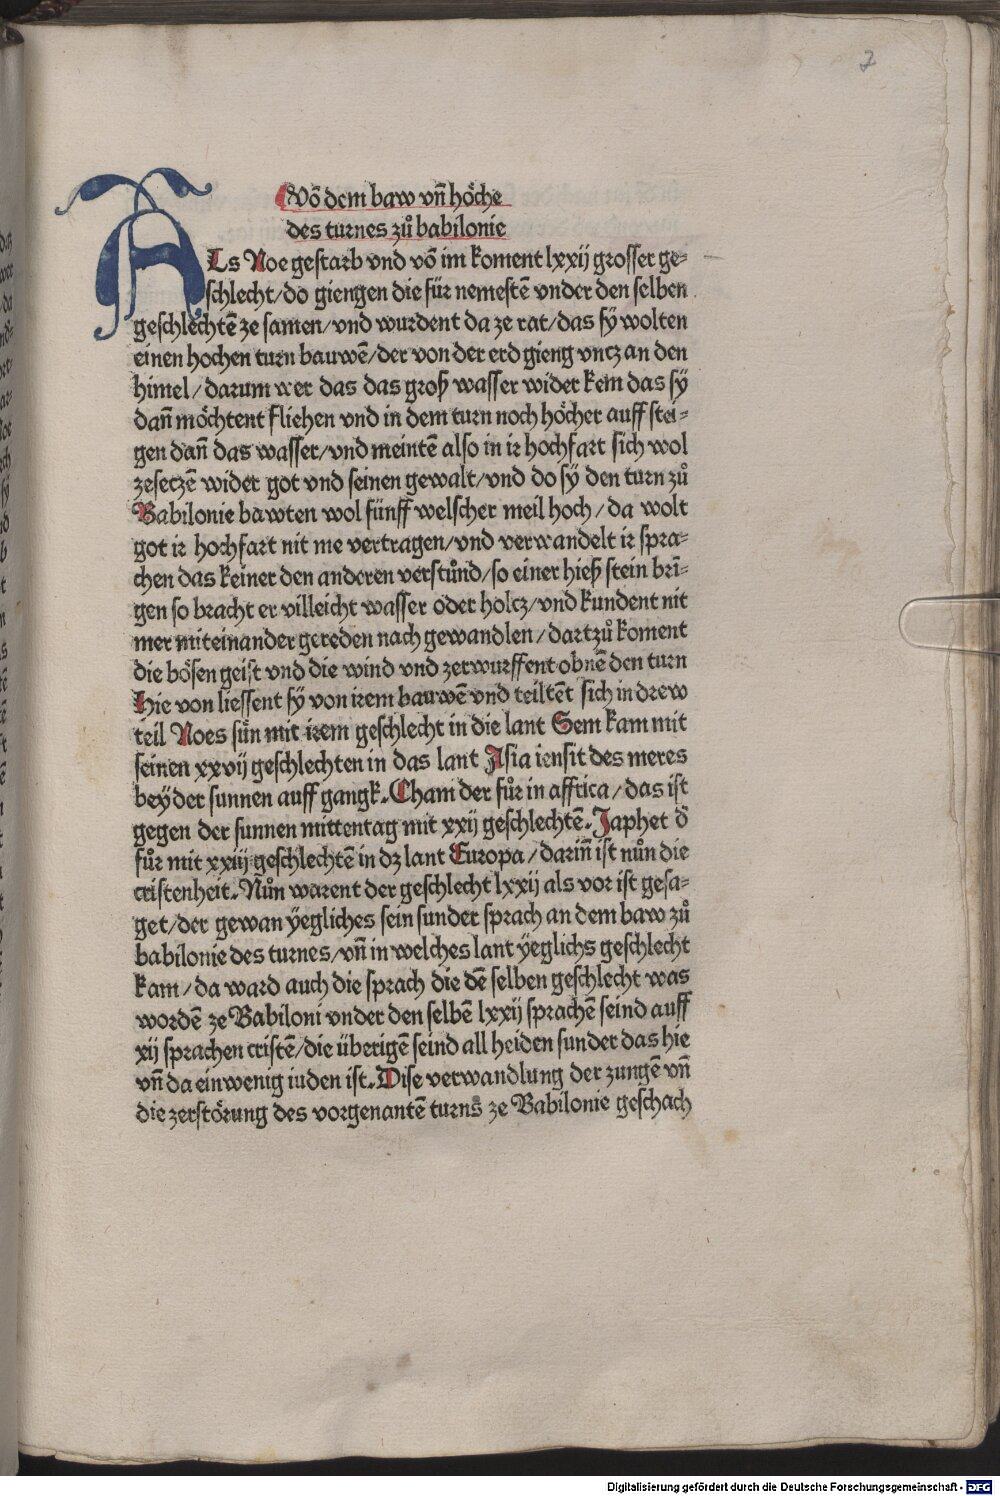 7
Võ dem baw vñ hoͤche
des turnes zuͦ babilonie
ALs Noe gestarb vnd võ im koment lxxij grosser ge⸗
schlecht/do giengen die für nemestẽ vnder den selben
geschlechtẽ ze samen/vnd wurdent da ze rat/das sÿ wolten
einen hochen turn bauwẽ/der von der erd gieng vncz an den
himel/darum wer das das groß wasser wider kem das sÿ
dañ moͤchtent fliehen vnd in dem turn noch hoͤcher auff stei⸗
gen dañ das wasser/vnd meintẽ also in ir hochfart sich wol
zeseczẽ wider got vnd seinen gewalt/vnd do sÿ den turn zuͦ
Babilonie bawten wol fünff welscher meil hoch/da wolt
got ir hochfart nit me vertragen/vnd verwandelt ir spra⸗
chen das keiner den anderen verstuͦnd/so einer hieß stein brĩ⸗
gen so bracht er villeicht wasser oder holcz/vnd kundent nit
mer miteinander gereden nach gewandlen/dartzuͦ koment
die boͤsen geist vnd die wind vnd zerwurffent obnẽ den turn
Hie von liessent sÿ von irem bauwẽ vnd teiltẽt sich in drew
teil Noes süñ mit irem geschlecht in die lant Sem kam mit
seinen xxvij geschlechten in das lant Asia iensit des meres
beÿ der sunnen auff gangk. Cham der fuͦr in affrica/das ist
gegen der sunnen mittentag mit xxij geschlechtẽ. Japhet d̄
fuͦr mit xxiij geschlechtẽ in dz lant Europa/dariñ ist nuͦn die
cristenheit. Nuͦn warent der geschlecht lxxij als vor ist gesa⸗
get/der gewan ÿegliches sein sunder sprach an dem baw zuͦ
babilonie des turnes/vñ in welches lant ÿeglichs geschlecht
kam/da ward auch die sprach die dẽ selben geschlecht was
wordẽ ze Babiloni vnder den selbẽ lxxij sprachẽ seind auff
xij sprachen cristẽ/die überigẽ seind all heiden sunder das hie
vñ da ein wenig iuden ist. Dise verwandlung der zungẽ vñ
die zerstoͤrung des vorgenantẽ turns ze Babilonie geschach
Digitalisierung gefördert durch die Deutsche Forschungsgemeinschaft - DFG